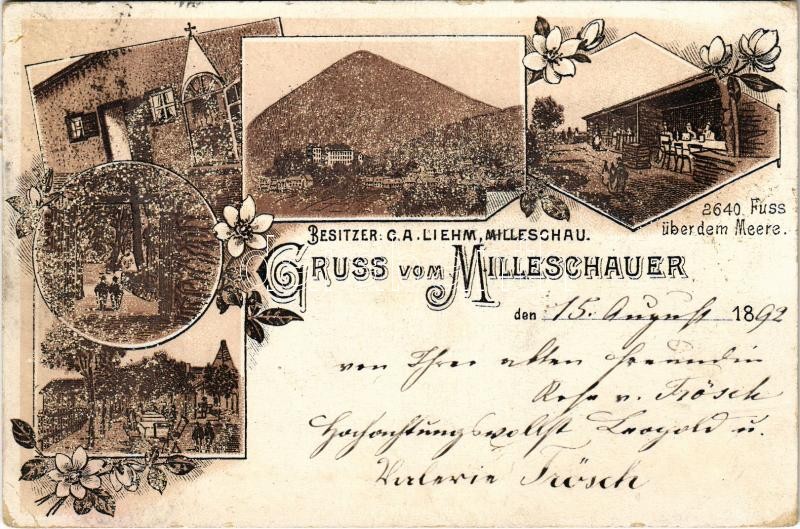 2640 Fuss
über dem Meere.
BESITZER: C. A. LIEHM, MILLESCHAU.
GRUSS VOM MILLESCHAUER
den 15. August 1892
von Ihrer alten Freundin
Rosa v. Frösch
Hochachtungsvollst Leopold u.
Valerie Frösch